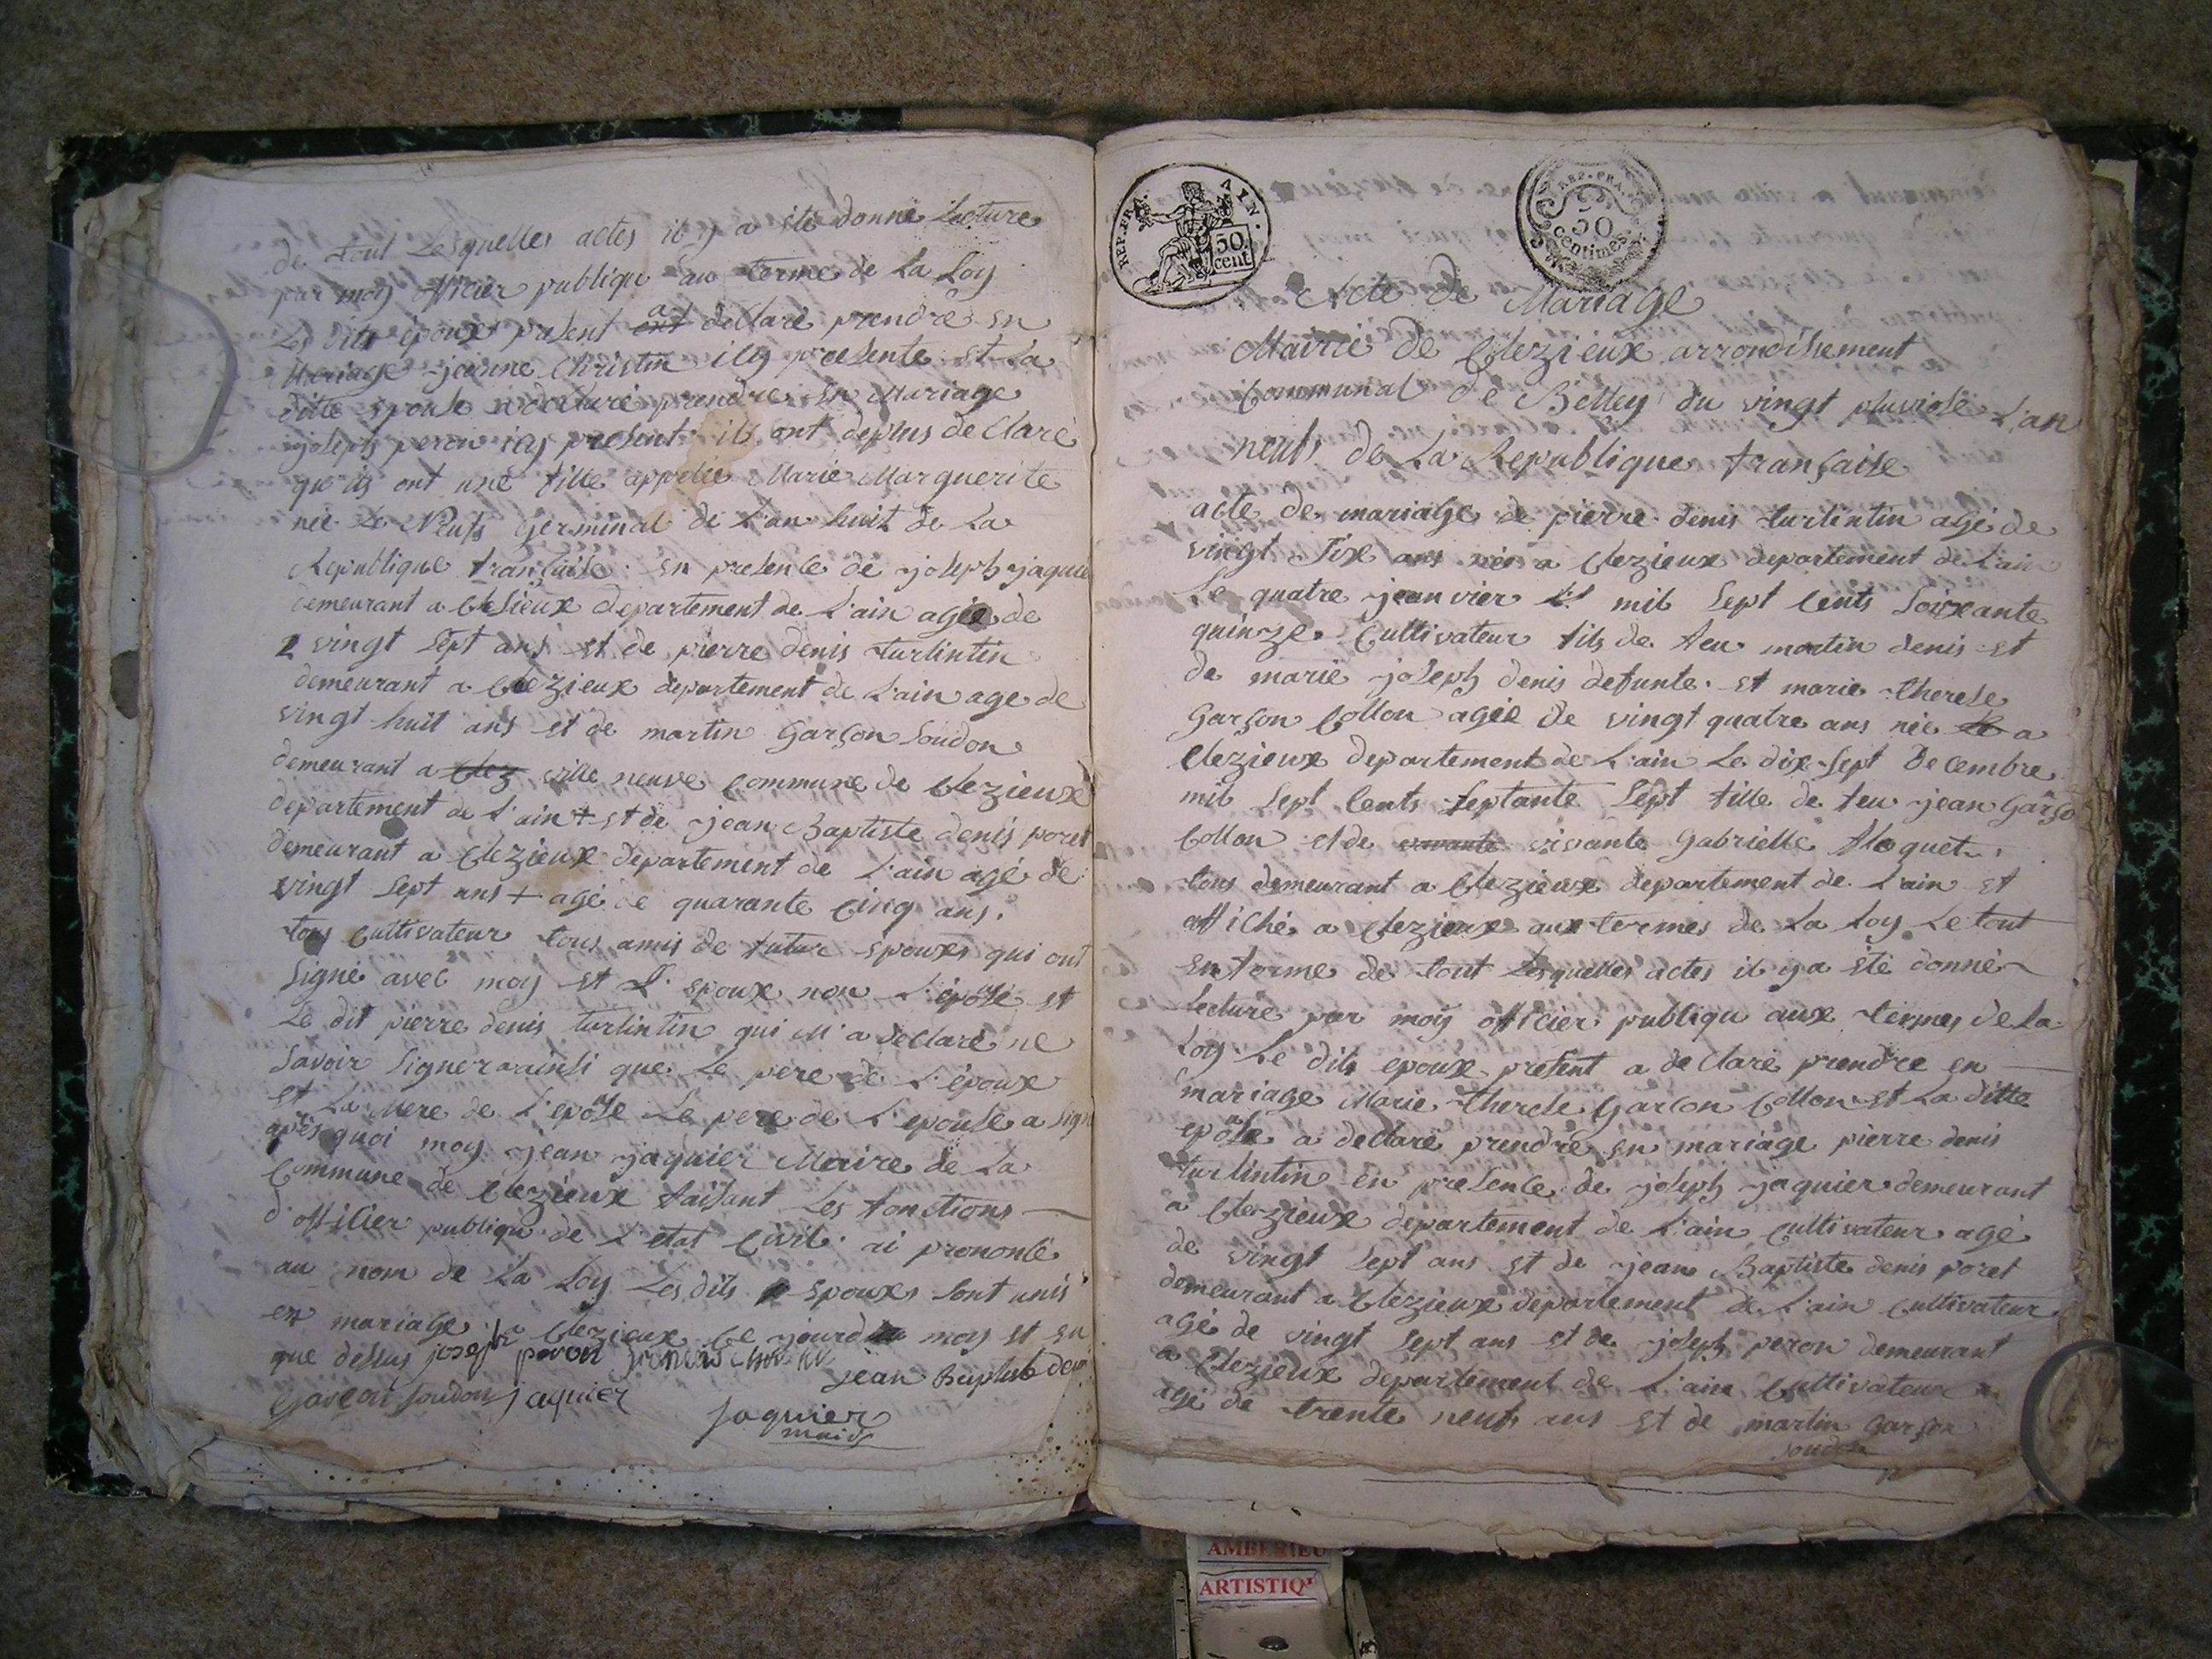 de tout Lesquelles actes il y a été donné Lecture
par moy officier publique au terme de La Loy
Les dits époux present ont a declaré prendre en
Mariage jeanne Christin icy presente et La
ditte epouse a declaré prendre en Mariage
joseph peron icy present ils ont deplus declaré
qu'ils ont une fille appelée Marie Marguerite
née Le Neufs Germinal de L'an huit de La
Republique française en presence de joseph jaquier
demeurant a Clesieux departement de L'ain agée de
vingt sept ans et de pierre denis turlintin
demeurant a Clezieux departement de L'ain age de
vingt huit ans et de martin Garçon soudon
demeurant a Clez ville neuve Commune de Clezieux
departement de L'ain + et de jean Baptiste denis poret
demeurant a Clezieux departement de L'ain agé de
vingt sept ans + agé de quarante Cinq ans.
tous Cultivateur tous amis de futur epouxs qui ont
signé avec moy et L' epoux non L'épôse et
Le dit pierre denis turlintin qui M'a declaré ne
savoir signer ainsi que Le pere de L'époux
et La Mere de L'epôse Le pere de L'epouse a signé
après quoi moy jean jaquier Maire de La
Commune de Clezieux faisant Les fonctions
d'officier publique de L'etat Civil ai prononcé
au nom de La Loy Les dits epouxs sont unis
en mariage a Clezieux Ce jourd moy et en
que dessus joseph peron
jean Baptiste denis
Garçon soudon jaquier
Jaquier
maire
REP. FRA. AIN.
50 cent
REP. FRA.
50 centimes
Acte de Mariage
Mairie de Clezieux arrondissement
Communal de Belley du vingt pluviose L'an
neufs de La Republique française
acte de mariage de pierre denis turlintin agé de
vingt Six ans née a Clezieux departement de L'ain
Le quatre jeanvier mil Sept Cents Soixante
quinze Cultivateur fils de feu martin denis et
de marie joseph denis defunte et marie therese
Garçon Collon agée de vingt quatre ans née le a
Clezieux departement de L'ain Le dix-sept Decembre
mil Sept Cents Septante Sept fille de feu jean Garço
Collon et de vivante Gabrielle floquet
tous demeurant a Clezieux departement de L'ain et
affiché a Clezieux aux termes de La Loy Le tout
en forme de tout Lesquelles actes il y a été donné
Lecture par moy officier publique aux termes de La
Loy Le dits epoux present a declaré prendre en
mariage Marie therese Garçon Collon et La ditte
epôse a declaré prendre en mariage pierre denis
turlintin en presence de joseph jaquier demeurant
a Clezieux departement de L'ain Cultivateur agé
de vingt Sept ans et de jean Baptiste denis poret
demeurant a Clezieux departement de L'ain Cultivateur
agé de vingt Sept ans et de joseph peron demeurant
a Clezieux departement de L'ain Cultivateur
agé de trente neufs ans et de martin Garçon
soudon
AMBERIEU
ARTISTIQ